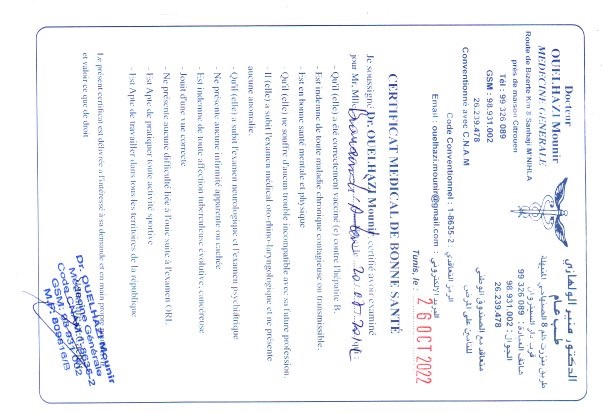 Docteur
OUELHAZI Mounir
MEDECINE GENERALE
Route de Bizerte Km 8 Sanhaji M'NIHLA
près de maison Citrouen
Tél : 99 326 089
GSM : 98 931.002
26.239.478
Conventionné avec C.N.A.M
الدكتور منير الولهازي
طب عام
طريق بنزرت كلم 8 الصنهاجي المنيهلة
قرب دار الستروان
هاتف العيادة : 089 326 99
الجوال : 98 931.002
26.239.478
متعاقد مع الصندوق الوطني
للتأمين على المرض
Code Conventionnel : 1-8635-2 : الرمز التعاقدي
Email : ouelhazi.mounir@gmail.com : البريد الإلكتروني
Tunis, le : 26 OCT 2022
CERTIFICAT MEDICAL DE BONNE SANTÉ
Je soussigné Dr. OUELHAZI Mounir, certifié avoir examiné
pour Mr, Mlle,
- Qu'il (elle) a été correctement vacciné (e) contre l'hépatite B.
- Est indemne de toute maladie chronique contagieuse ou transmissible.
- Est en bonne santé mentale et physique
Qu'il (elle) ne souffre d'aucun trouble incompatible avec sa future profession.
- Il (elle) a subit l'examen médical oto-rhino-laryngologique et ne présente
aucune anomalie.
- Qu'il (elle) a subit l'examen neurologique et l'examen psychiatrique
- Ne présente aucune infirmité apparente ou cachée
- Est indemne de toute affection tuberculeuse évolutive, cancéreuse
- Jouit d'une vue correcte
- Ne présente aucune difficulté liée à l'ouie suite à l'examen ORL
- Est Apte de pratiquer toute activité sportive
- Est Apte de travailler dans tous les territoires de la république
Le présent certificat est délivrée a l'intéressé à sa demande et en main propre
et valoir ce que de droit
Dr. OUELHAZI Mounir
Médecine Générale
Code CNAM 1-8635-2
GSM: 98 931 002